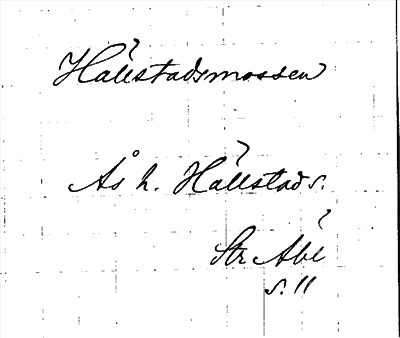 Hällstadsmossen
Ås h. Hällstads s.
Str Åbl
s. 11